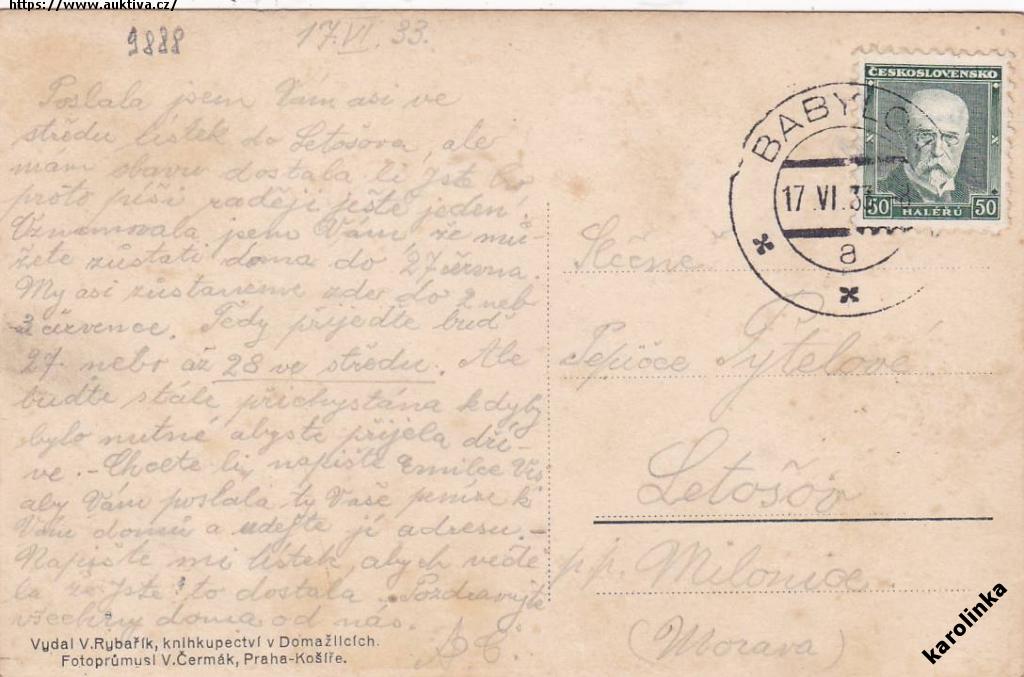 https://www.auktiva.cz/
9888
17.VI.33.
Poslala jsem Vám asi ve
středu lístek do Letošova, ale
mám obavu dostala li jste ho
proto píši raději ještě jeden.
Oznamovala jsem Vám, že mů-
žete zůstati doma do 27 června.
My asi zůstaneme zde do 2 neb
3 července. Tedy přijeďte buď
27 nebo až 28 ve středu. Ale
buďte stále přichystána kdyby
bylo nutné abyste přijela dří-
ve. - Chcete li, napište Emilce
aby Vám poslala ty Vaše peníze k
Vám domů a udejte jí adresu. -
Napište mi lístek, abych vědě-
la že jste to dostala. Pozdravujte
všechny doma od nás.
Vydal V.Rybařík, knihkupectví v Domažlicích.
Fotoprůmysl V.Čermák, Praha-Košíře.
ČESKOSLOVENSKO
50 HALÉŘŮ 50
BABYLON
17.VI.33
a
Slečně
Pepičce Pytelové
Letošov
pp. Milonice
(Morava)
karolinka